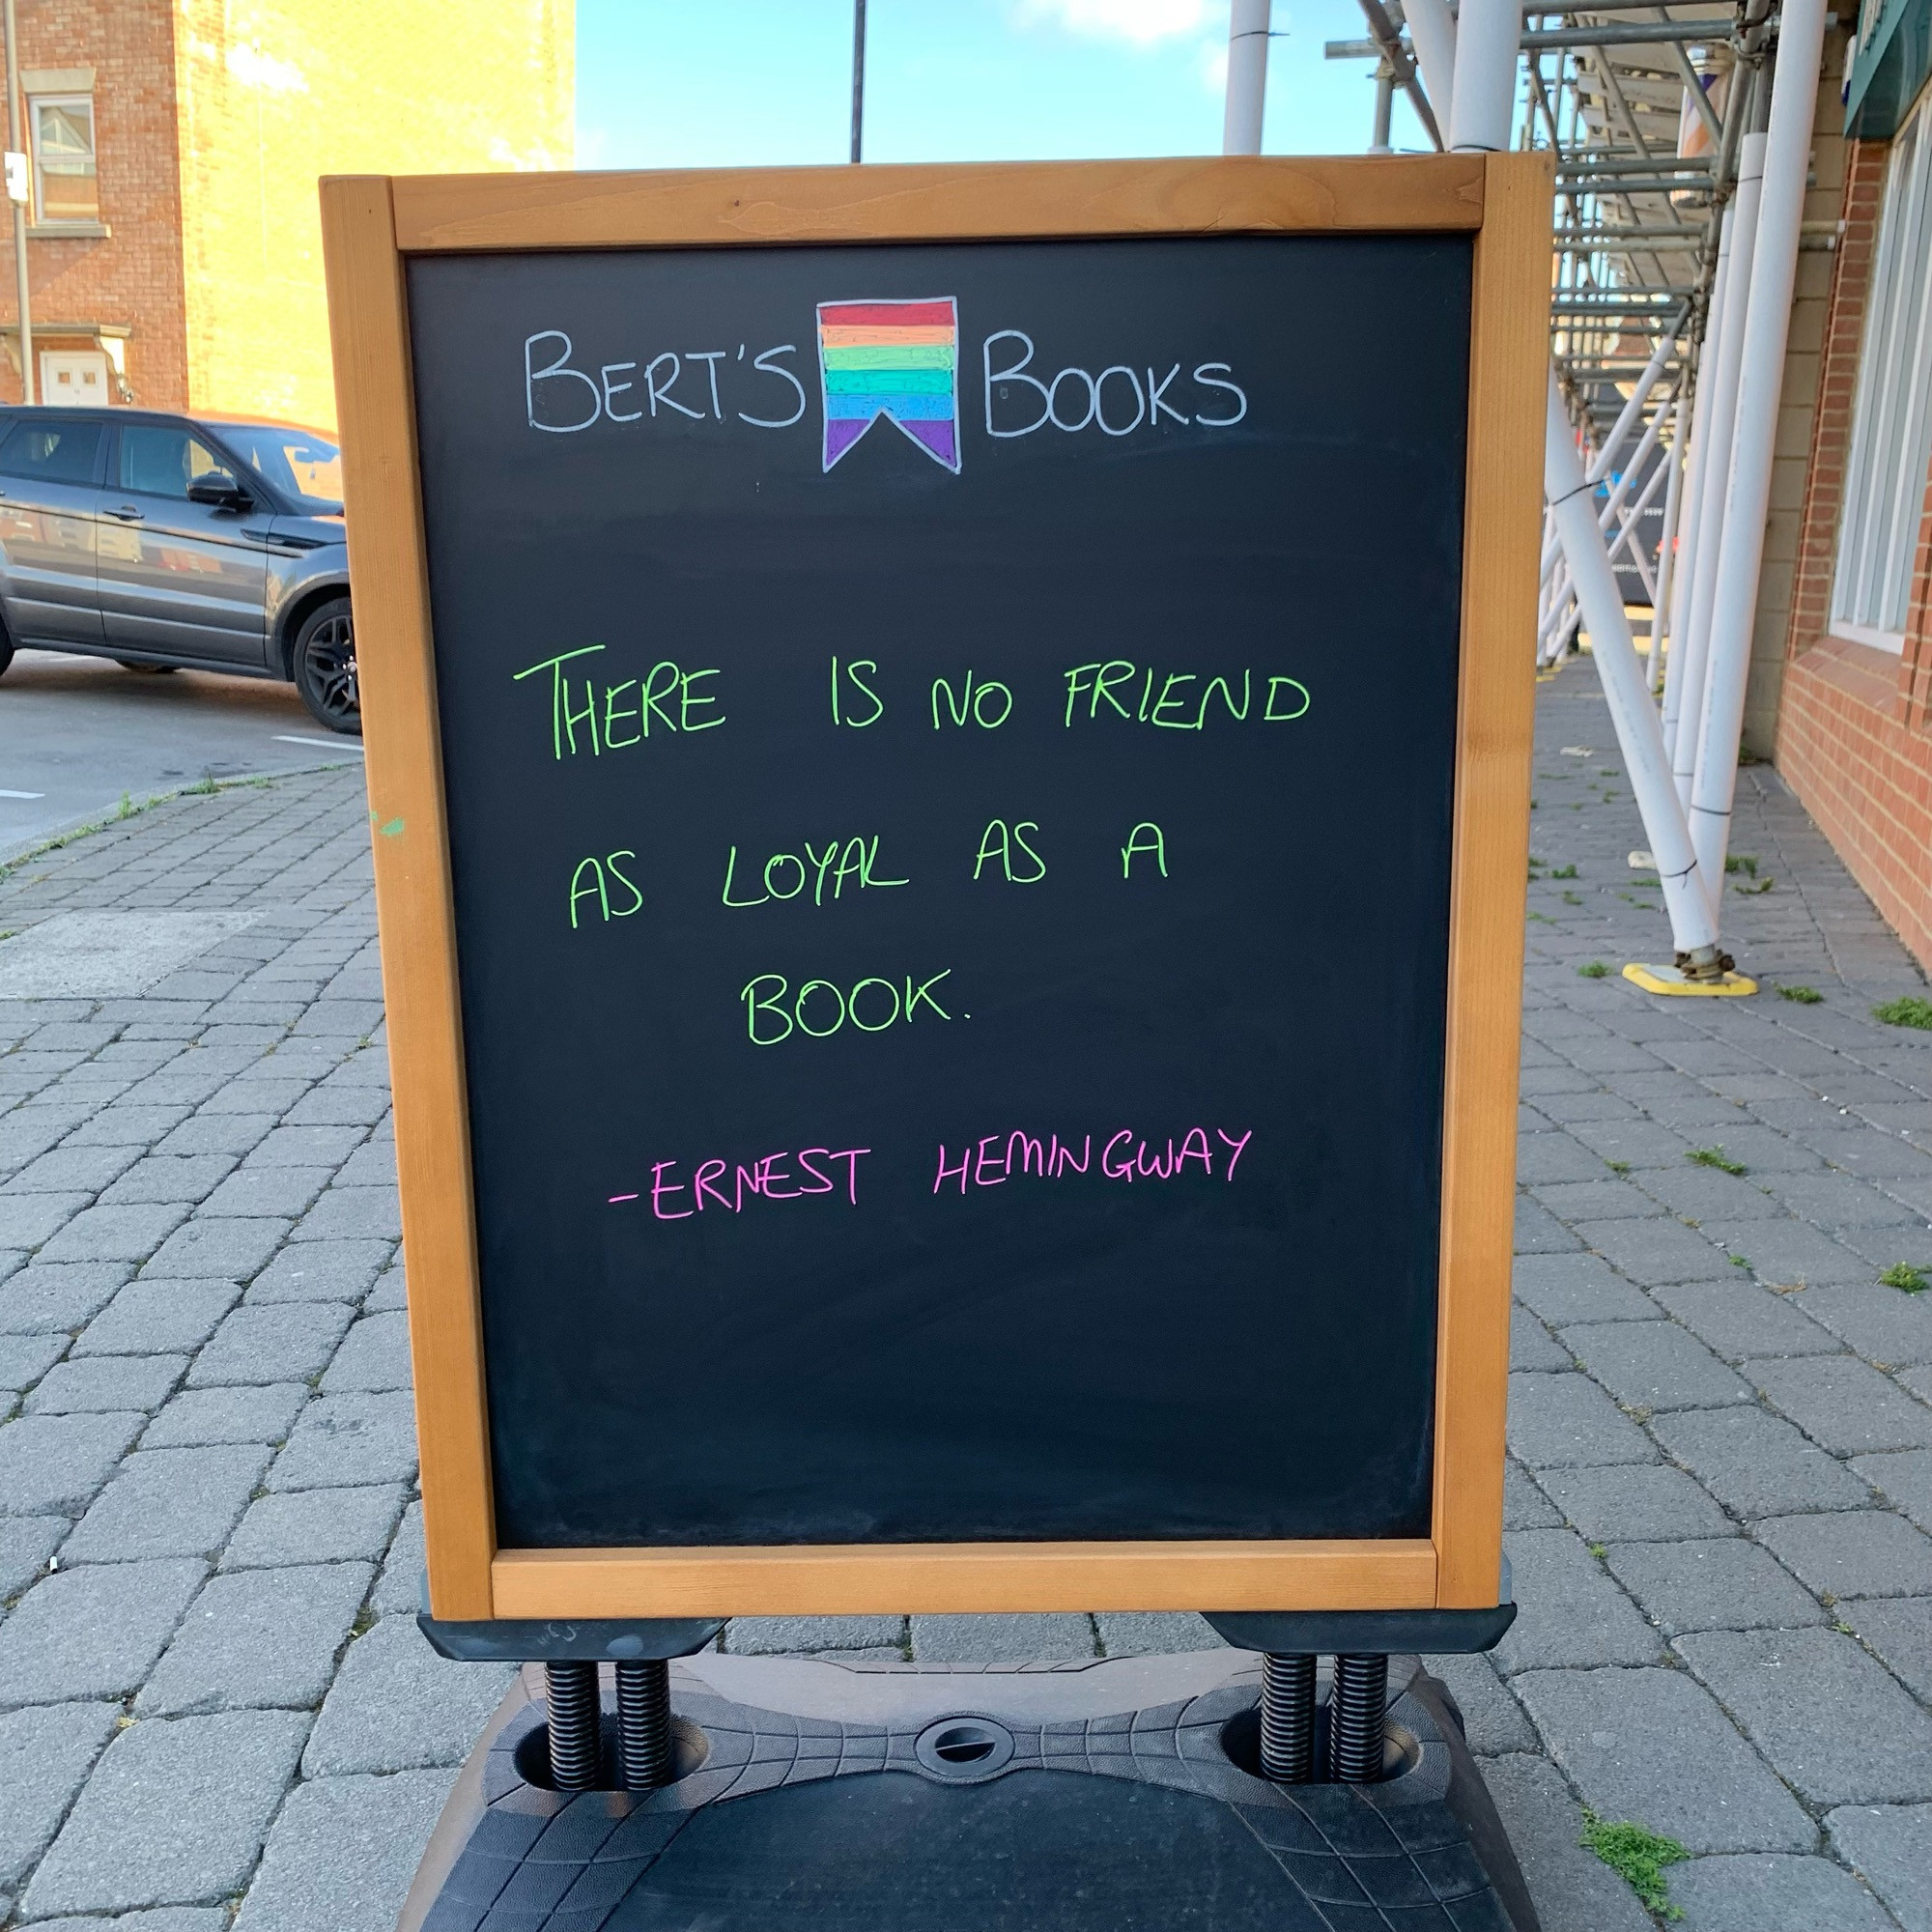 BERT'S BOOKS
THERE IS NO FRIEND
AS LOYAL AS A
BOOK.
-ERNEST HEMINGWAY